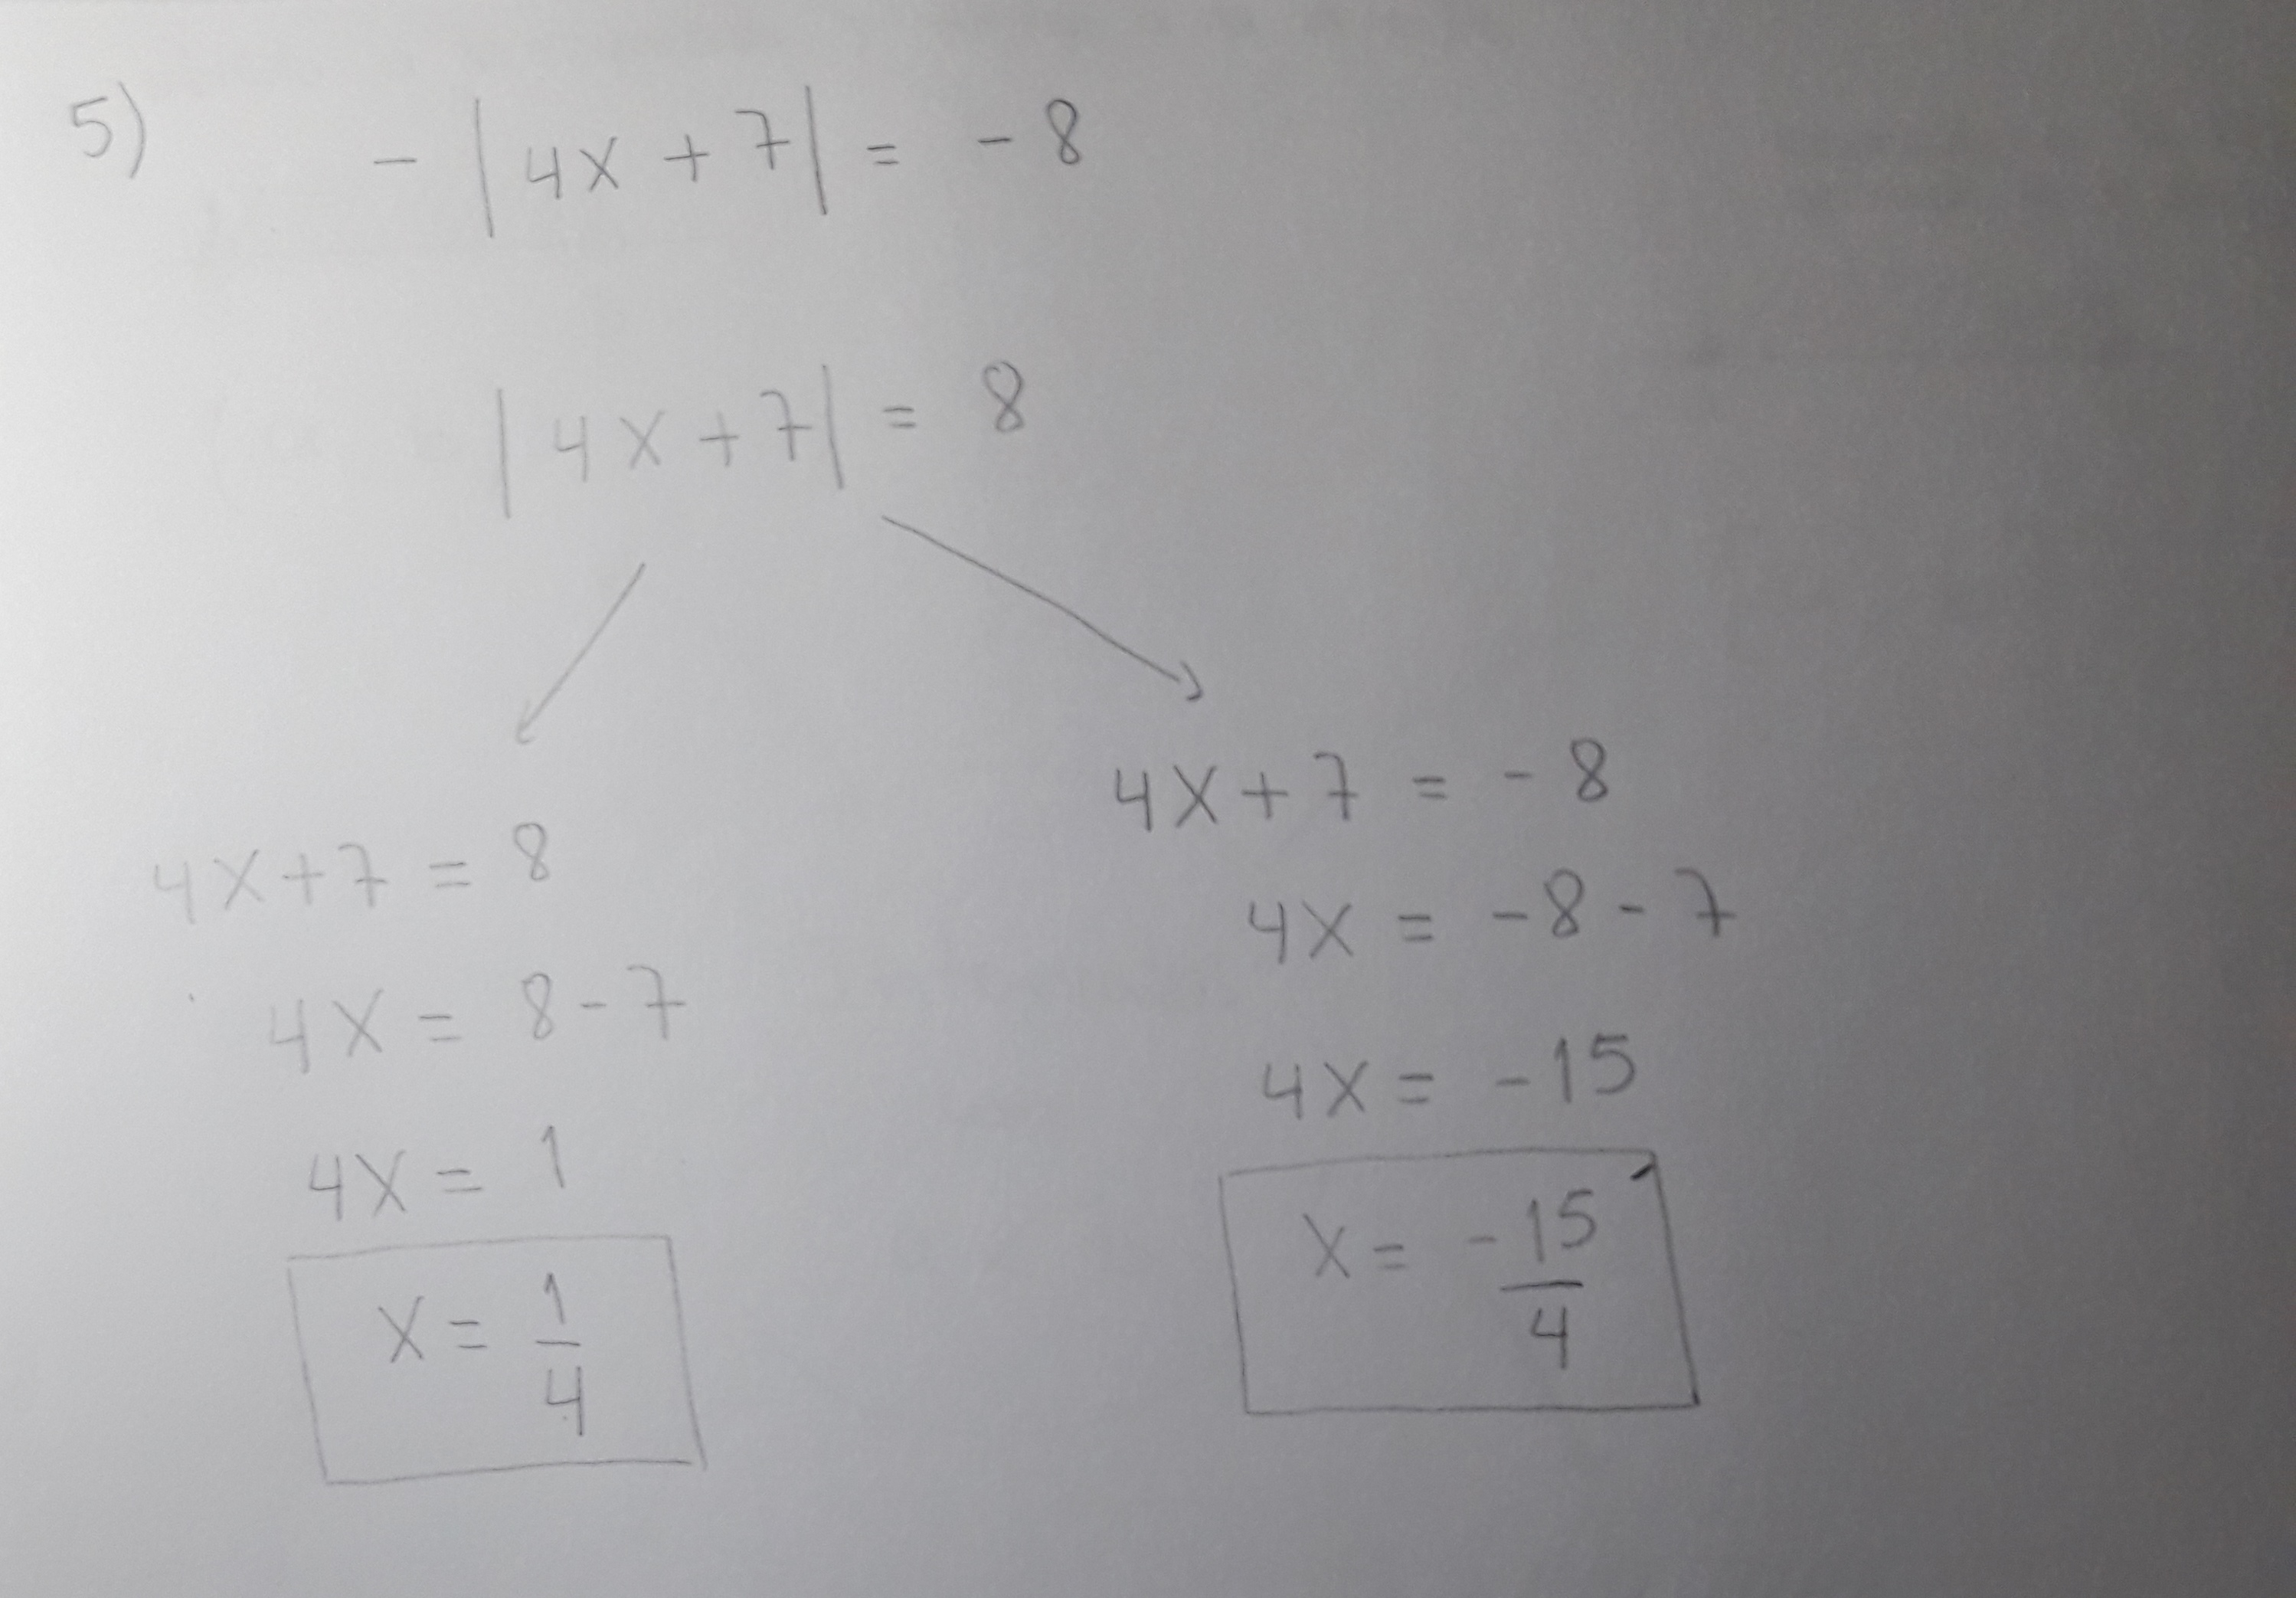 5) - |4x + 7| = - 8
|4x + 7| = 8
4x + 7 = 8
4x = 8 - 7
4x = 1
x = 1/4
4x + 7 = - 8
4x = - 8 - 7
4x = - 15
x = - 15/4